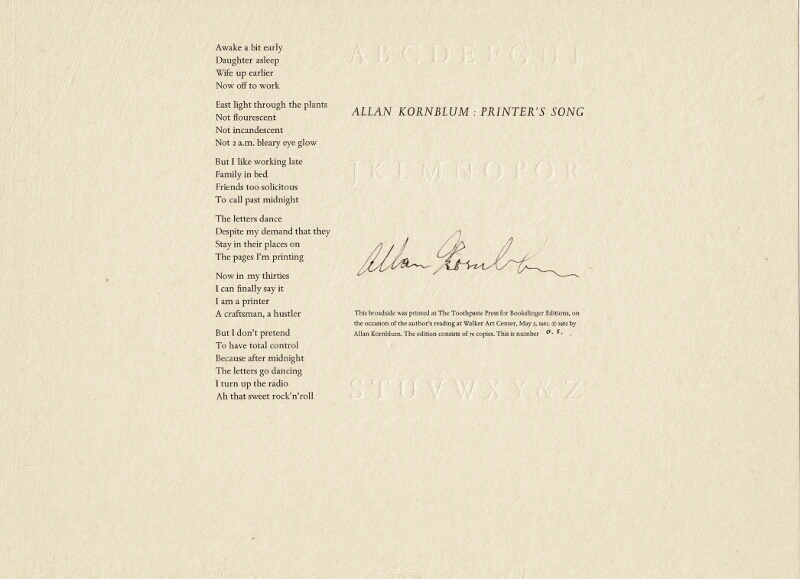 Awake a bit early
Daughter asleep
Wife up earlier
Now off to work
East light through the plants
Not flourescent
Not incandescent
Not 2 a.m. bleary eye glow
But I like working late
Family in bed
Friends too solicitous
To call past midnight
The letters dance
Despite my demand that they
Stay in their places on
The pages I'm printing
Now in my thirties
I can finally say it
I am a printer
A craftsman, a hustler
But I don't pretend
To have total control
Because after midnight
The letters go dancing
I turn up the radio
Ah that sweet rock'n'roll
A B C D E F G H I
ALLAN KORNBLUM : PRINTER'S SONG
J K L M N O P Q R
Allan Kornblum
This broadside was printed at The Toothpaste Press for Bookslinger Editions, on
the occasion of the author's reading at Walker Art Center, May 5, 1982. © 1982 by
Allan Kornblum. The edition consists of 70 copies. This is number O. S. .
S T U V W X Y & Z